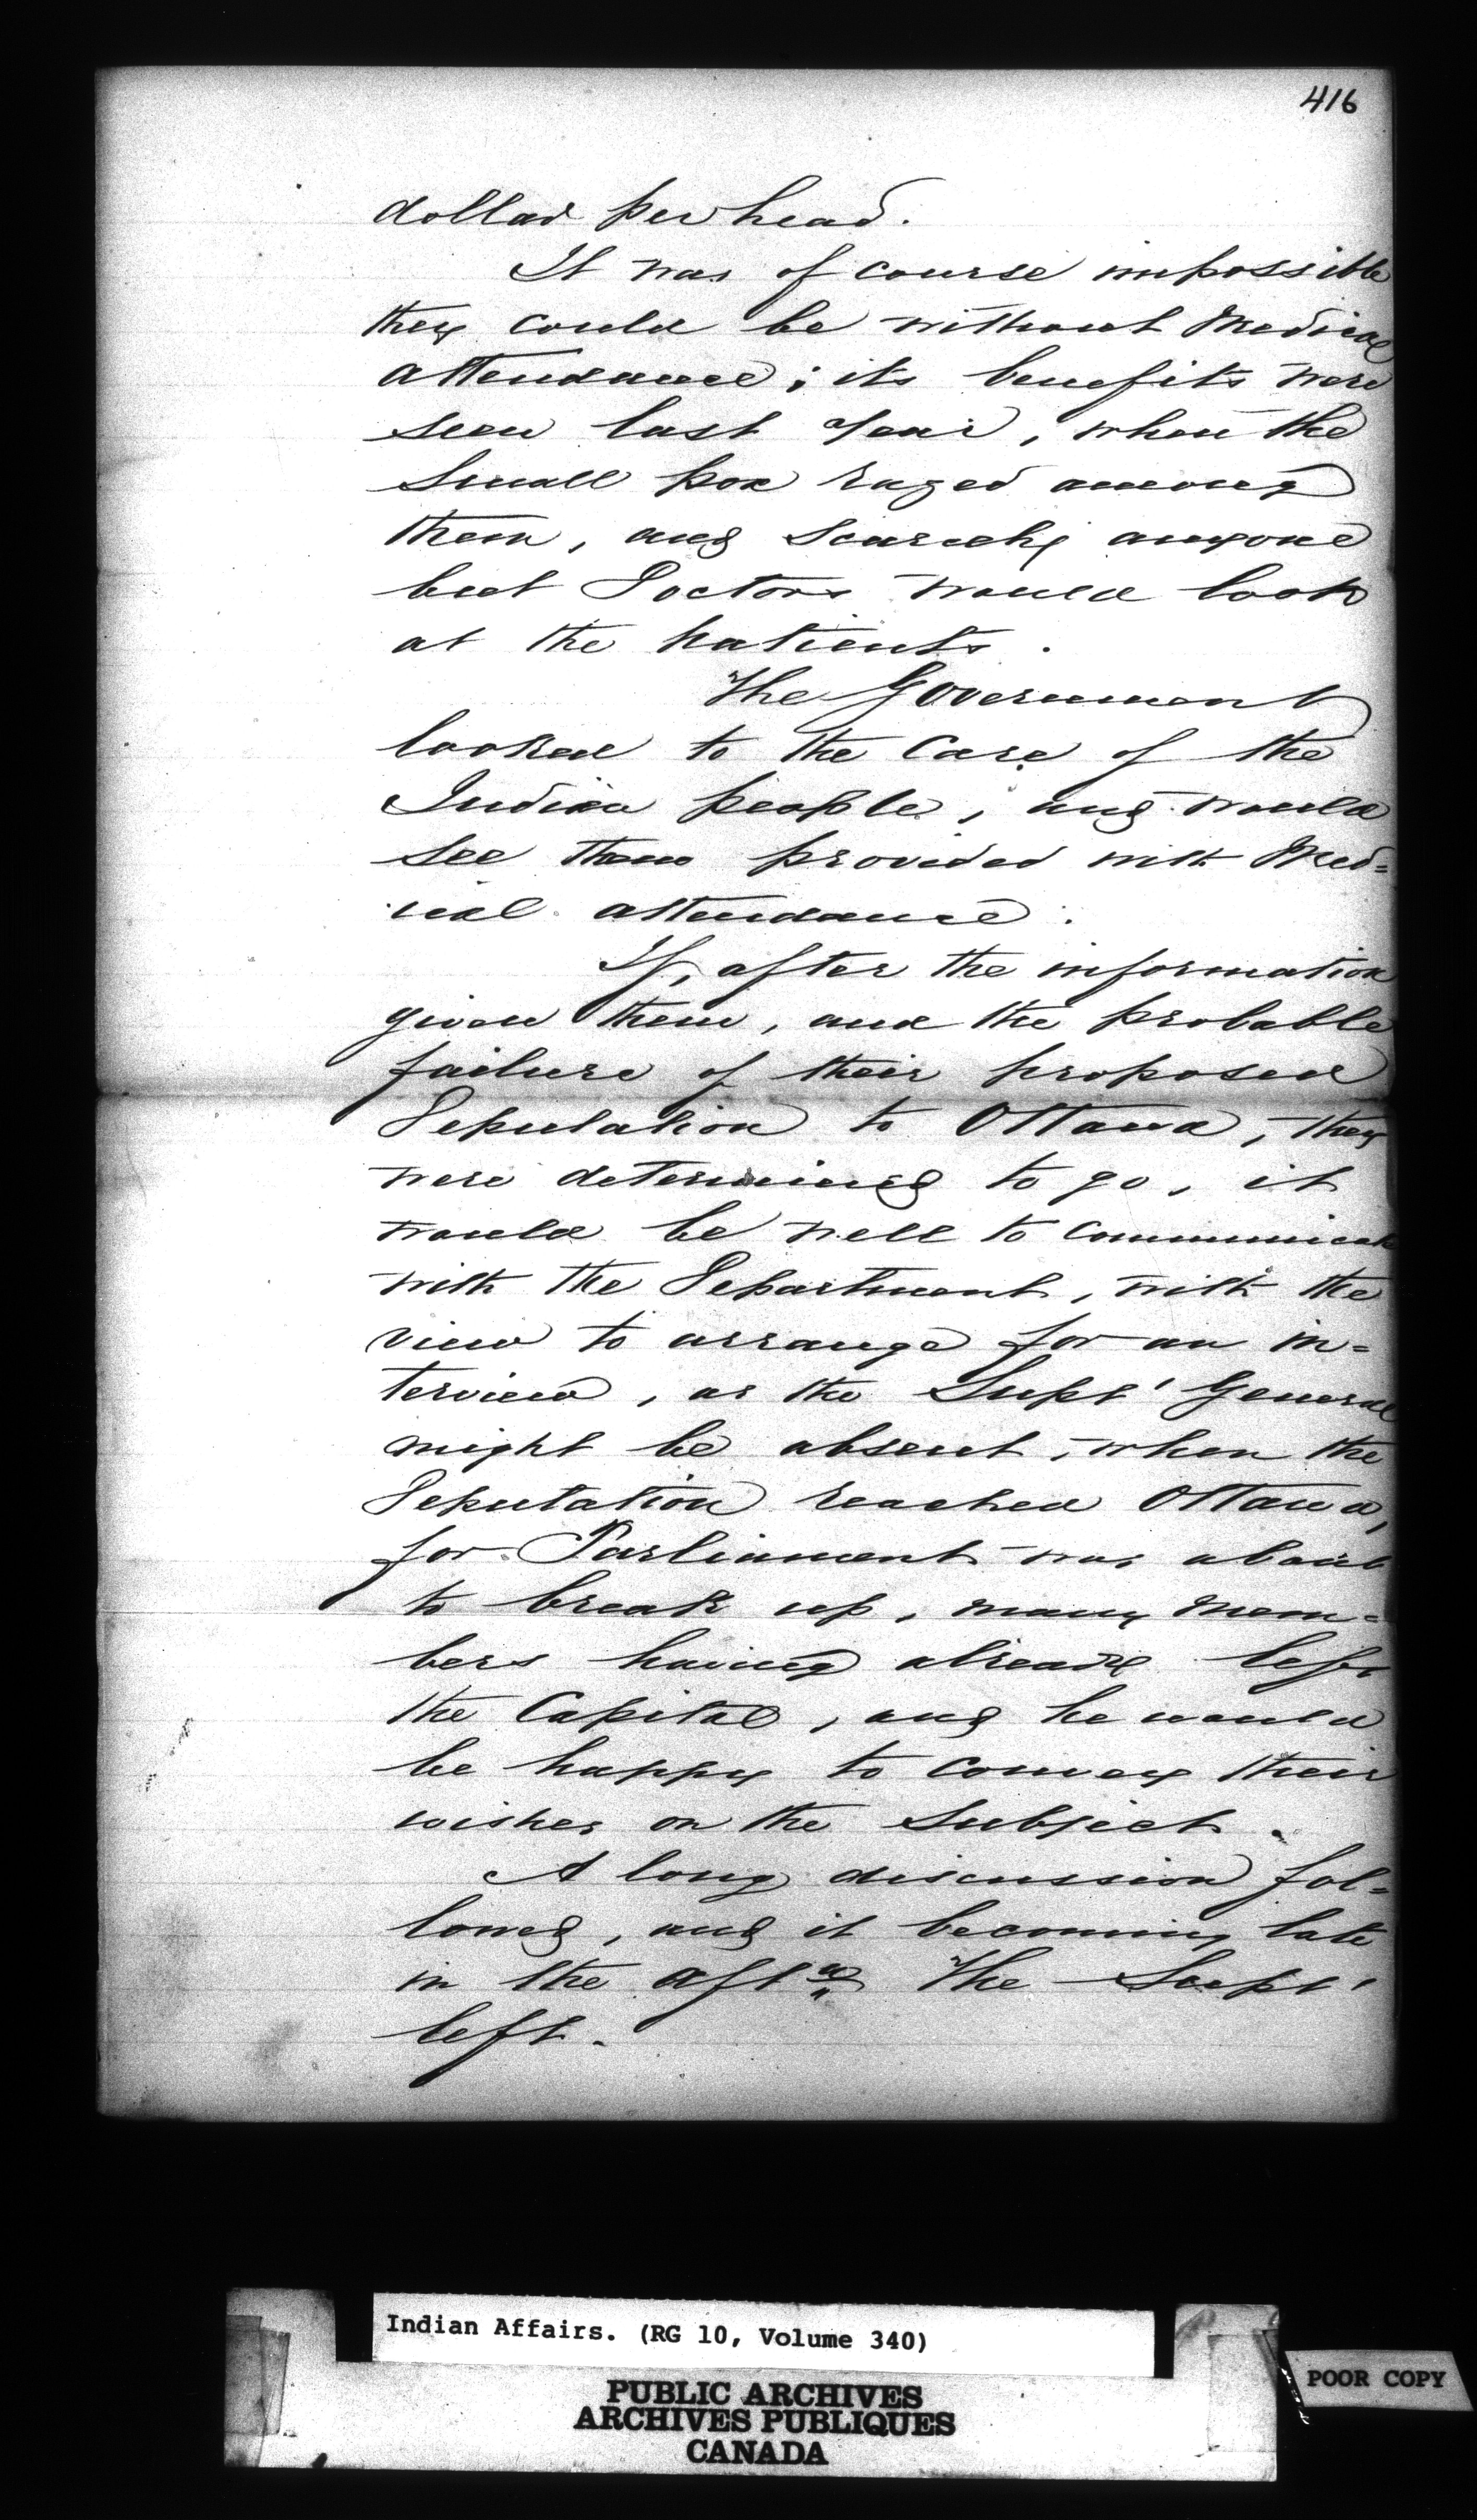 416
dollar per head.
It was of course impossible
they could be without Medical
attendance; its benefits were
seen last year, when the
Small pox raged among
them, and scarcely anyone
but Doctors would look
at the patients.
The Government
looked to the Care of the
Indian people, and would
see them provided with Med=
ical attendance.
If, after the information
given them, and the probable
failure of their proposed
Deputation to Ottawa, they
were determined to go, it
would be well to communicate
with the Department, with the
view to arrange for an in=
terview, as the Supt' General
might be absent, when the
Deputation reached Ottawa,
for Parliament was about
to break up, many mem=
bers having already left
the Capital, and he would
be happy to convey their
wishes on the Subject.
A long discussion fol=
lowed, and it becoming late
in the Aftn The Supt'
left.
Indian Affairs. (RG 10, Volume 340)
PUBLIC ARCHIVES
ARCHIVES PUBLIQUES
CANADA
POOR COPY